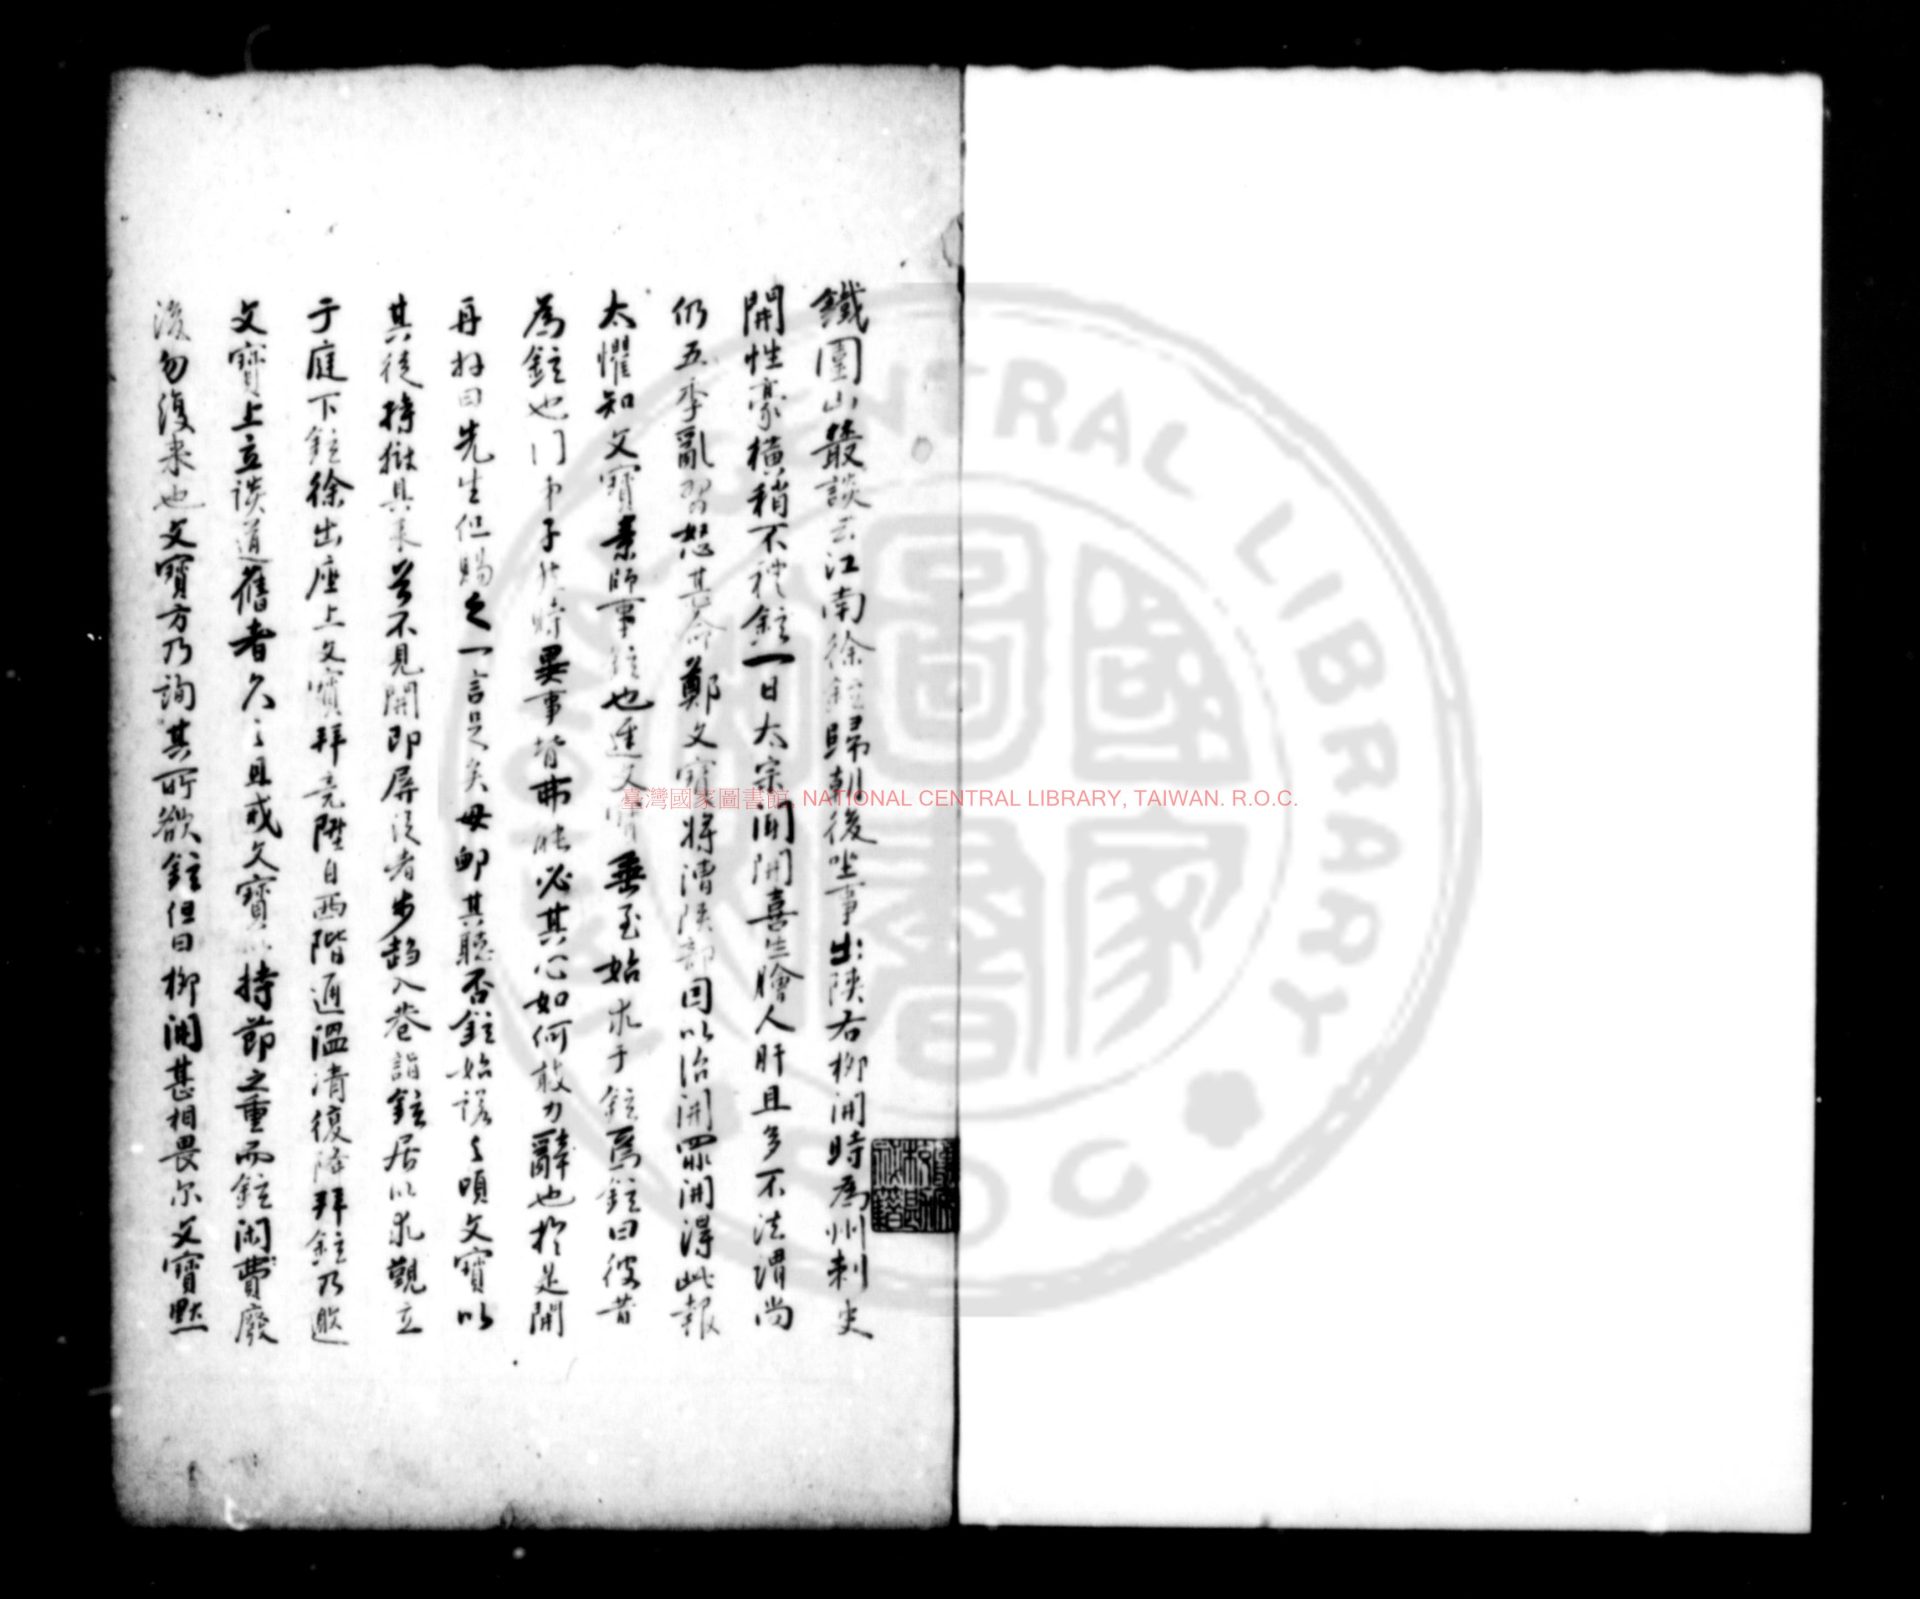 鐵圍山叢談云江南徐鉉歸朝後坐事出陝右柳開時為州刺史
開性豪橫稍不礼鉉一日太宗聞開喜生膾人肝且多不法謂尚
仍五季亂習怒甚命鄭文寶將漕陝部因以治開罪開得此報
大懼知文寶素師事鉉也逮文寶垂至始求于鉉焉鉉曰彼昔
為鉉也門弟子然時異事背弗能必其心如何敢力辭也於是開
再拜曰先生但賜之一言足矣毋卹其聽否鉉始諾之頃文寶以
其徒持獄具來首不見開即屏從者步趨入巷詣鉉居以求覲立
于庭下鉉徐出座上文寶拜竟陞自西階通溫凊復降拜鉉乃邀
文寶上立談道舊者久之且戒文寶以持節之重而鉉閑費廢
後勿復來也文寶方乃詢其所欲鉉但曰柳開甚相畏尔文寶默
臺灣國家圖書館 NATIONAL CENTRAL LIBRARY, TAIWAN. R.O.C.